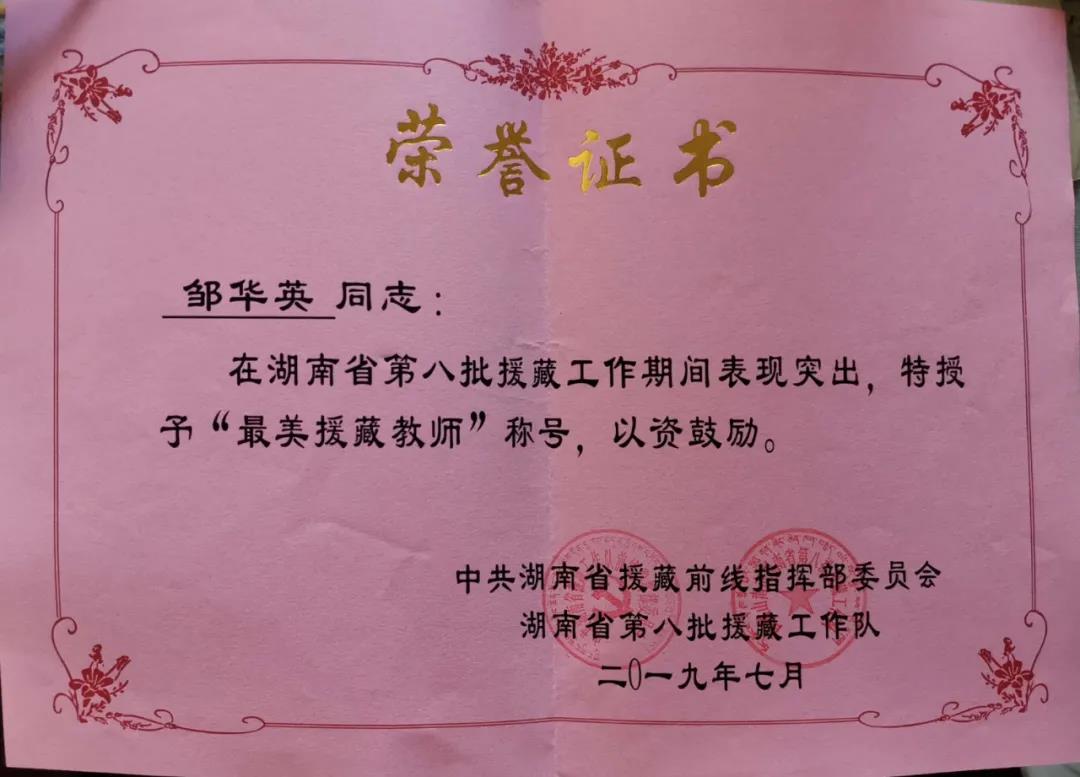 荣誉证书
邹华英 同志：
在湖南省第八批援藏工作期间表现突出，特授
予“最美援藏教师”称号，以资鼓励。
中共湖南省援藏前线指挥部委员会
湖南省第八批援藏工作队
二〇一九年七月